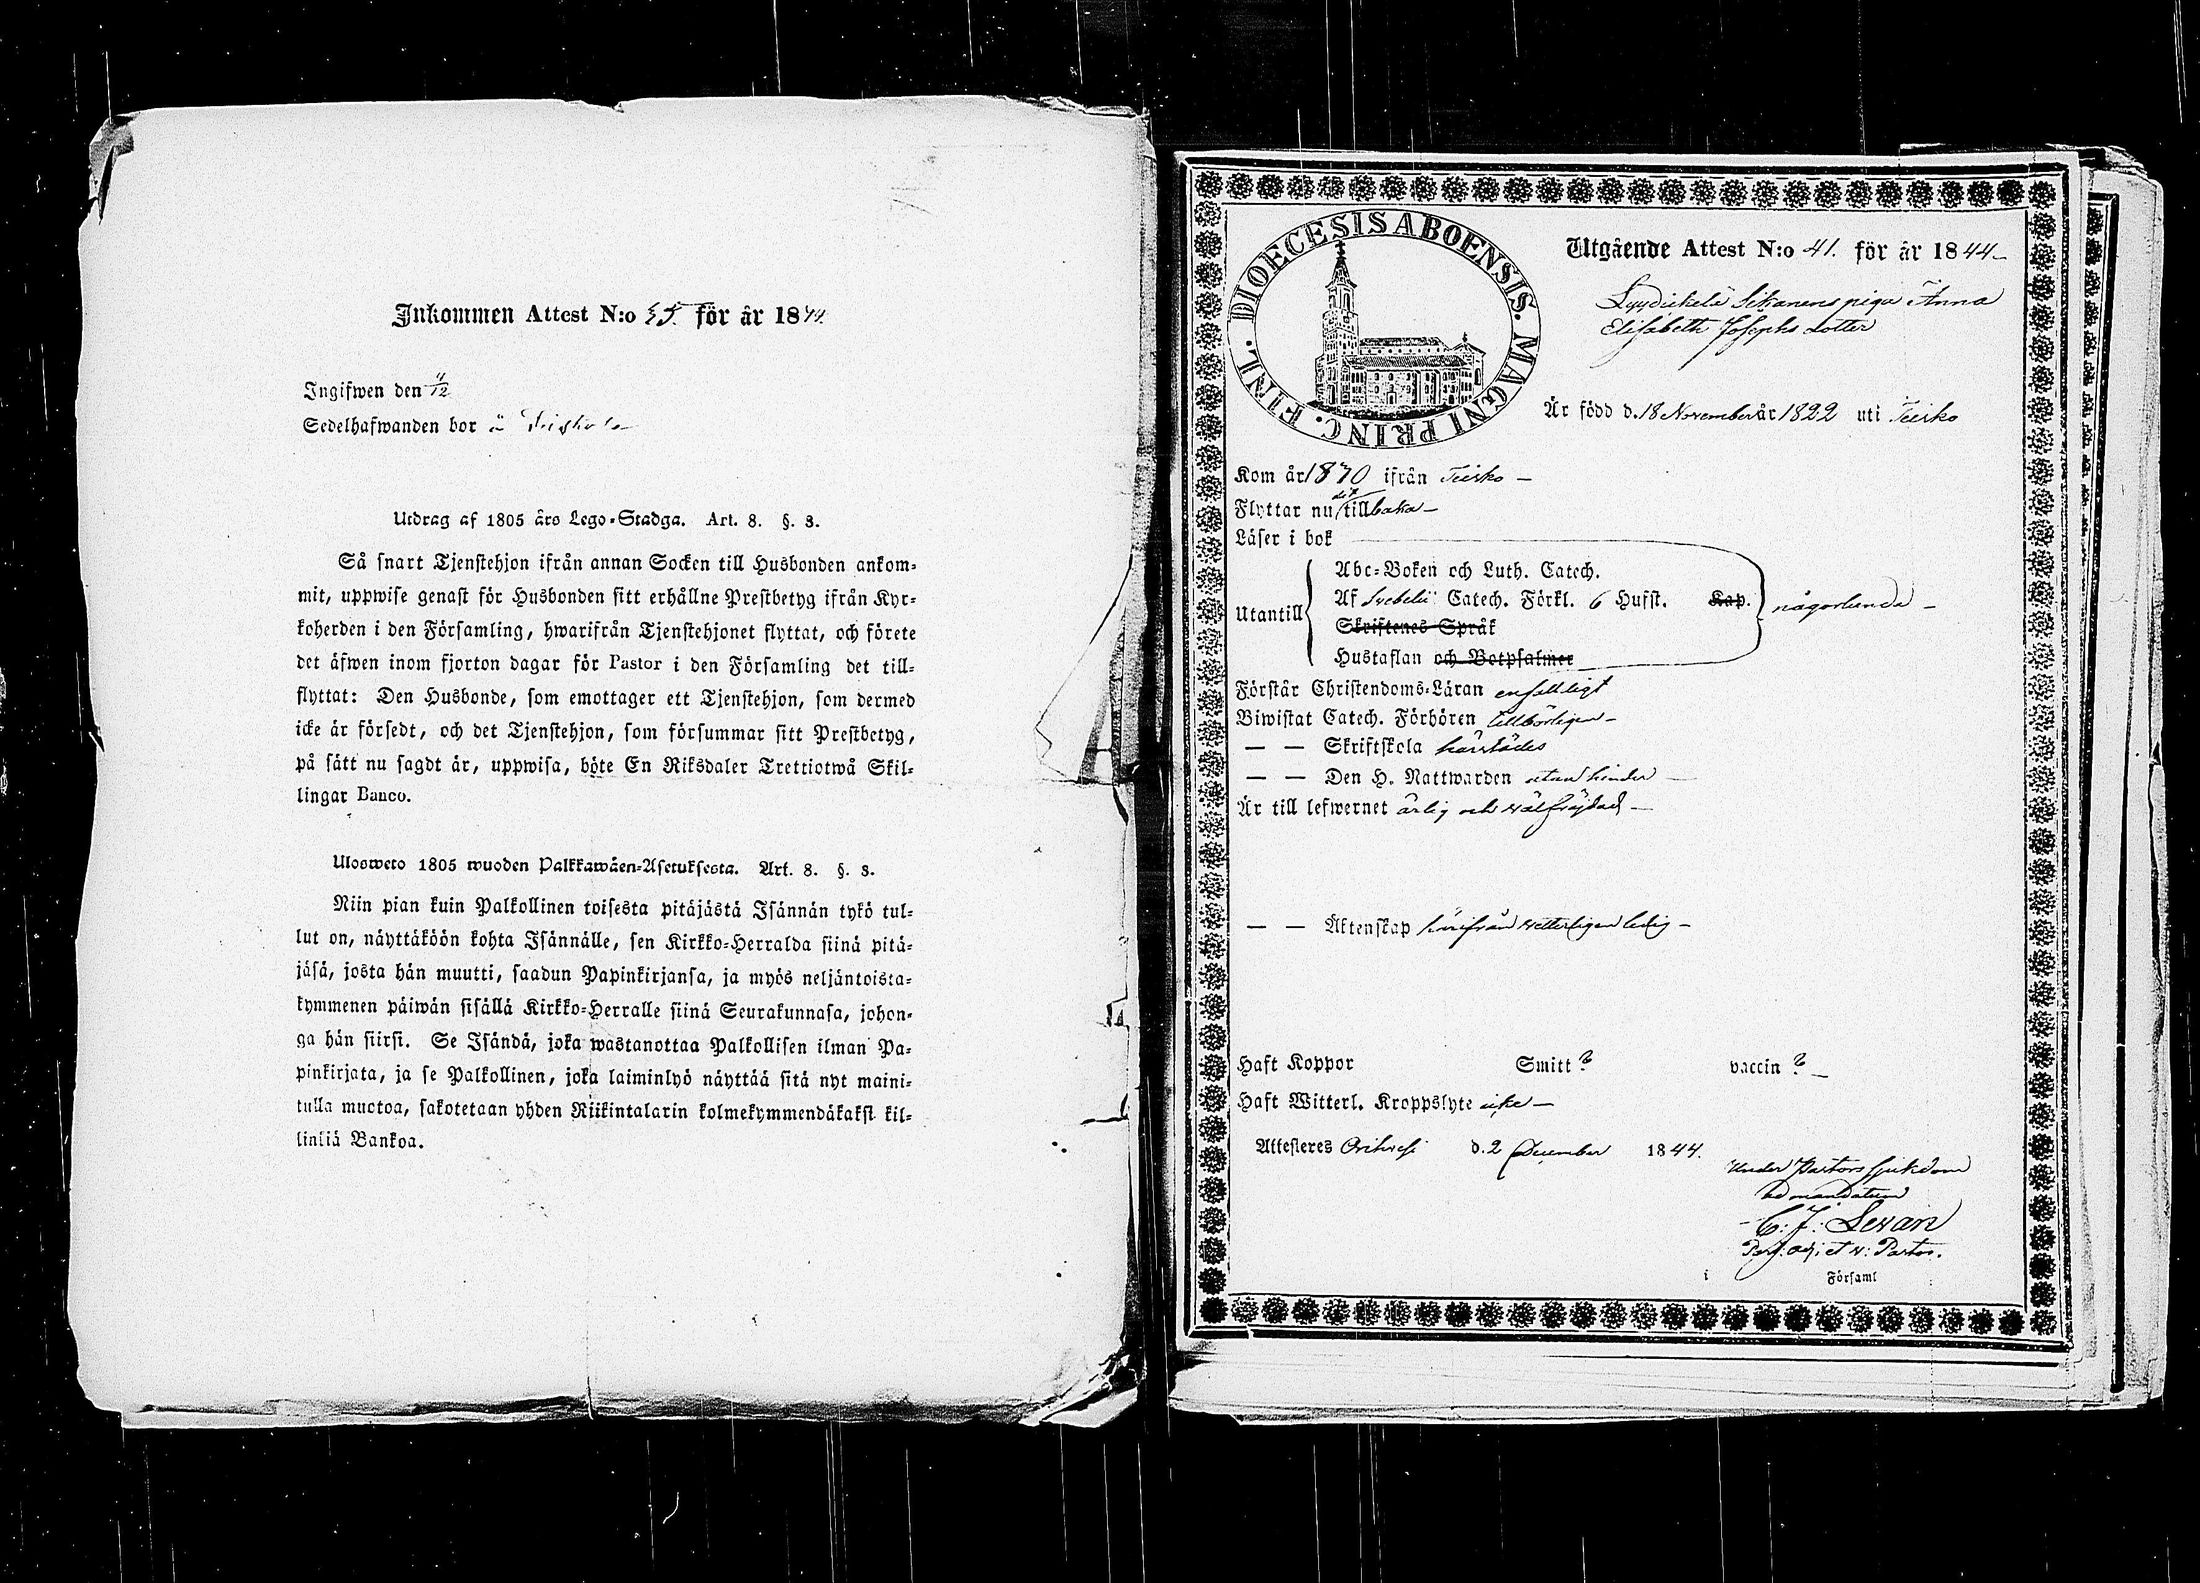 Inkommen Attest N:o 55. för år 1844
Ingifwen den 4/12
Sedelhafwanden bor å
Utdrag af 1805 års Lego-Stadga. Art. 8. §. 3.
Så snart Tjenstehjon ifrån annan Socken till Husbonden ankom-
mit, uppwise genast för Husbonden sitt erhållne Prestbetyg ifrån Kyr-
koherden i den Församling, hwarifrån Tjenstehjonet flyttat, och förete
det äfwen inom fjorton dagar för Pastor i den Församling det till-
flyttat: Den Husbonde, som emottager ett Tjenstehjon, som dermed
icke är försedt, och det Tjenstehjon, som försummar sitt Prestbetyg,
på sätt nu sagdt är, uppwisa, böte En Riksdaler Trettiotwå Skil-
lingar Banco.
Ulosweto 1805 wuoden Palkkawäen-Asetuksesta. Art. 8. §. 3.
Niin pian kuin Palkollinen toisesta pitäjästä Isännän tykö tul-
lut on, näyttäköön kohta Isännälle, sen Kirkko-Herralda siinä pitä-
jäsä, josta hän muutti, saadun Papinkirjansa, ja myös neljäntoista-
kymmenen päiwän sisällä Kirkko-Herralle siinä Seurakunnasa, johon-
ga hän siirsi. Se Isändä, joka wastanottaa Palkollisen ilman Pa-
pinkirjata, ja se Palkollinen, joka laiminlyö näyttää sitä nyt maini-
tulla muotoa, sakotetaan yhden Riikintalarin kolmekymmendäkaksi kil-
linkiä Bankoa.
DIOECESIS ABOENSIS. MAGNI PRINC. FINL.
Utgående Attest N:o 41. för år 1844
piga Anna
Elisabeth Josephs dotter
Är född d. 18 November år 1822 uti Teisko
Kom år 1840 ifrån Teisko
Flyttar nu dit tillbaka
Läser i bok
Abc-Boken och Luth. Catech.
Utantill Af Svebelii Catech. Förkl. 6 Hufst. Kap. någorlunda
Skriftenes Språk
Hustaflan och Botpsalmer
Förstår Christendoms-Läran enfaldigt
Biwistat Catech. Förhören tillbörligen
— — Skriftskola härstädes
— — Den H. Nattwarden utan hinder
Är till lefwernet ärlig och wälfrejdad
— — Äktenskap härifrån wetterligen ledig
Haft Koppor Smitt ? vaccin ?
Haft Witterl. Kroppslyte icke
Attesteres Orihvesi d. 2 December 1844.
Under Pastors sjukdom
ad mandatum
C. J. Levan
Past. adj. et v: Pastor.
i Församl